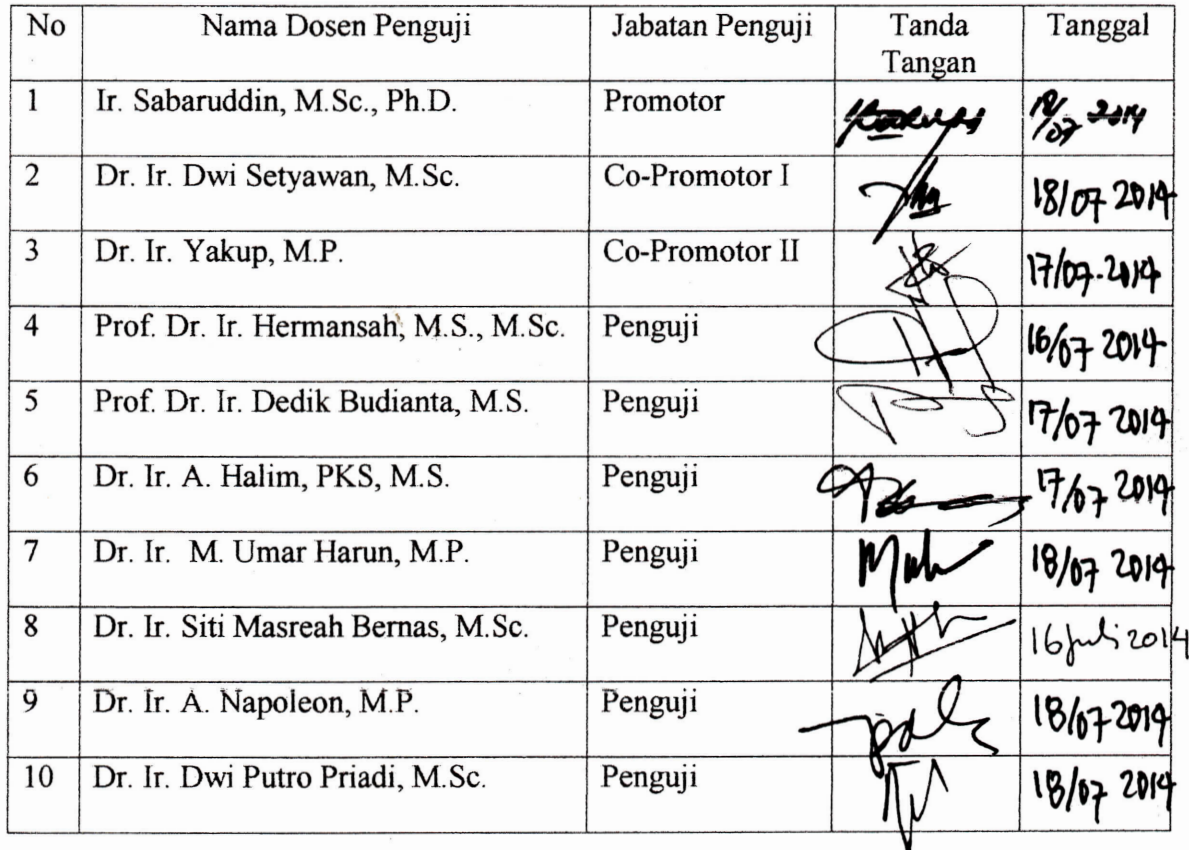 No Nama Dosen Penguji Jabatan Penguji Tanda Tangan Tanggal
1 Ir. Sabaruddin, M.Sc., Ph.D. Promotor 18/07 2014
2 Dr. Ir. Dwi Setyawan, M.Sc. Co-Promotor I 18/07 2014
3 Dr. Ir. Yakup, M.P. Co-Promotor II 17/07-2014
4 Prof. Dr. Ir. Hermansah, M.S., M.Sc. Penguji 16/07 2014
5 Prof. Dr. Ir. Dedik Budianta, M.S. Penguji 17/07 2014
6 Dr. Ir. A. Halim, PKS, M.S. Penguji 17/07 2014
7 Dr. Ir. M. Umar Harun, M.P. Penguji 18/07 2014
8 Dr. Ir. Siti Masreah Bernas, M.Sc. Penguji 16 Juli 2014
9 Dr. Ir. A. Napoleon, M.P. Penguji 18/07 2014
10 Dr. Ir. Dwi Putro Priadi, M.Sc. Penguji 18/07 2014